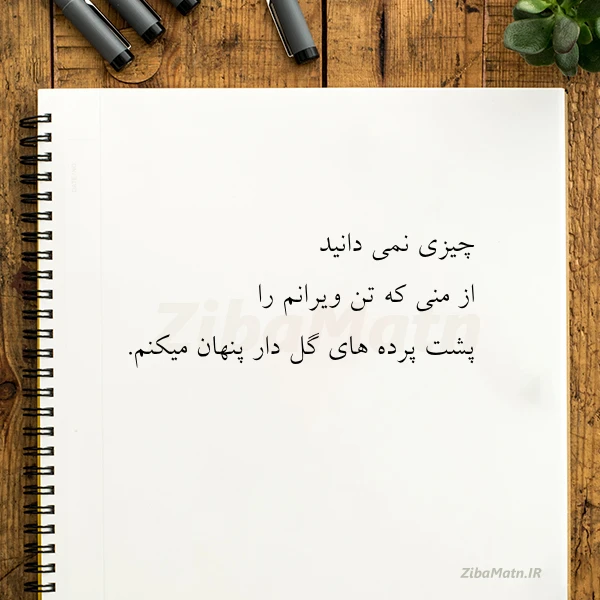 چیزی نمی دانید
از منی که تن ویرانم را
پشت پرده های گل دار پنهان میکنم.
ZibaMatn
ZibaMatn.IR